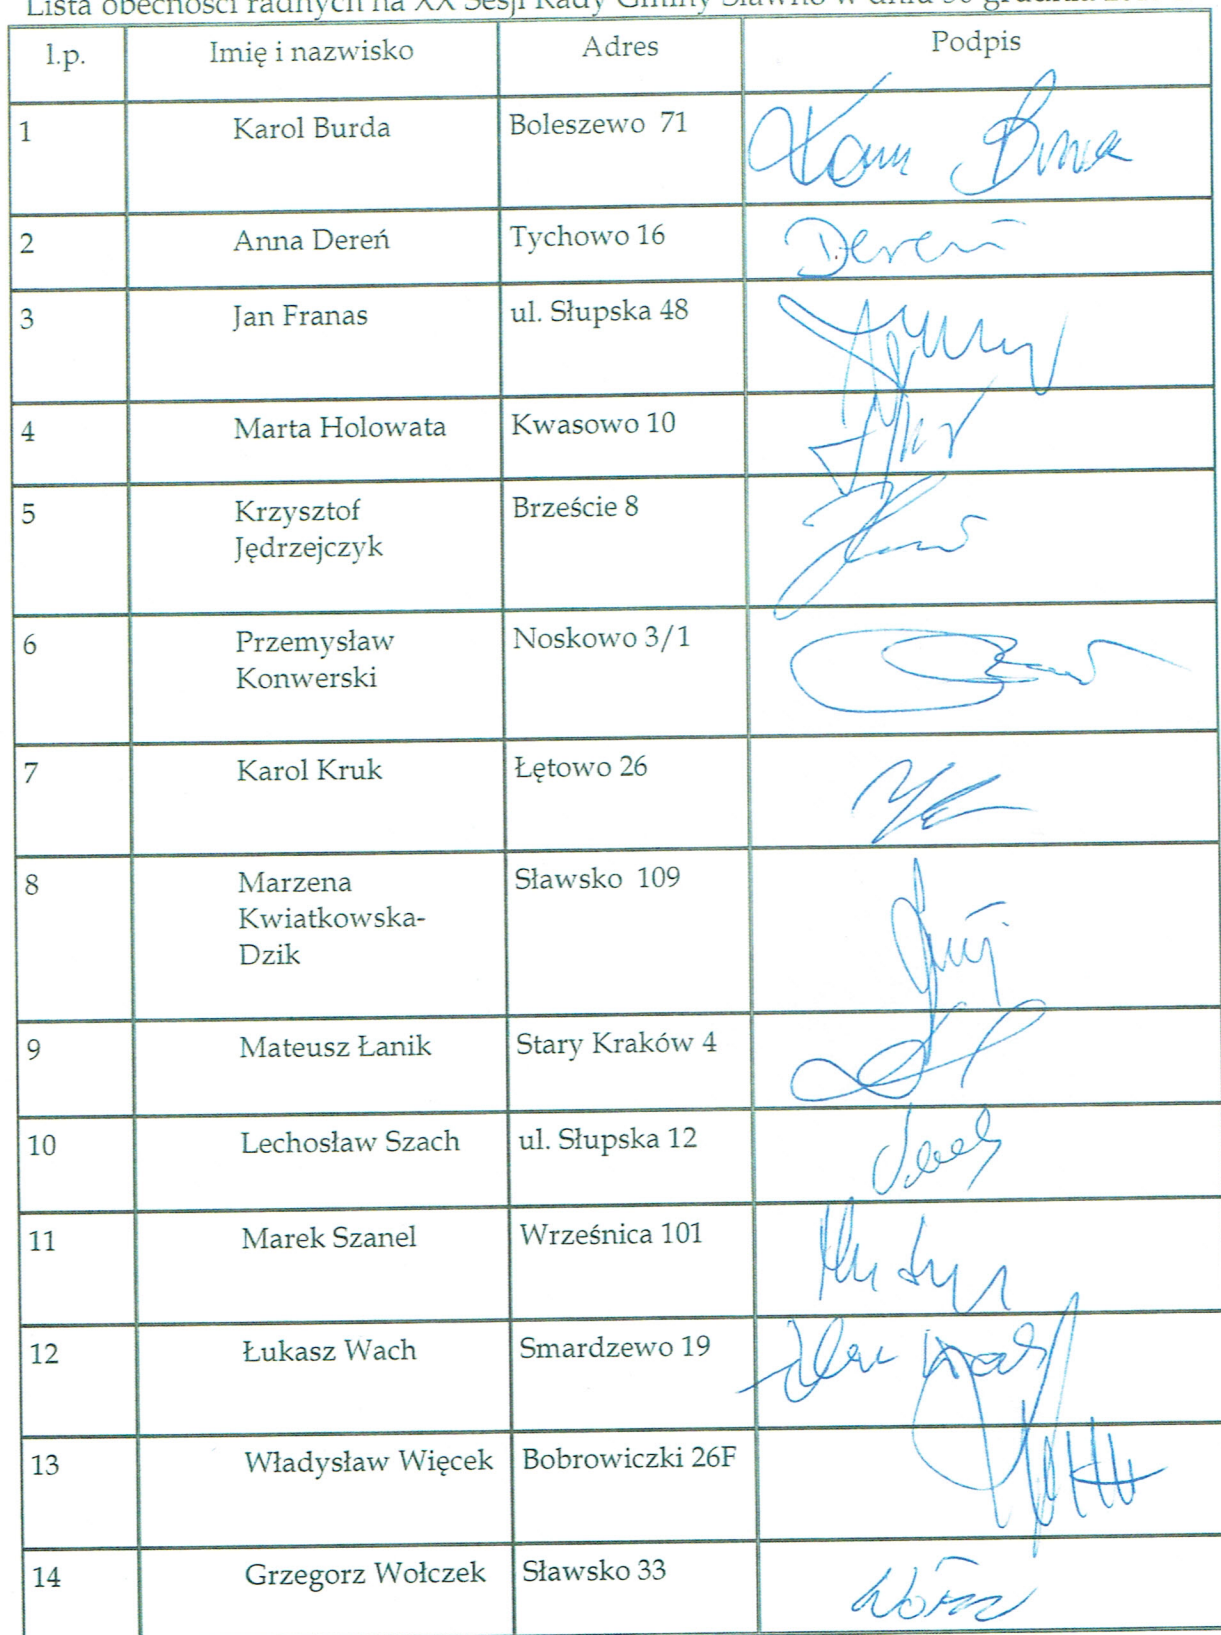 Lista obecności radnych na XX Sesji Rady Gminy Sławno w dniu 30 grudnia
l.p. Imię i nazwisko Adres Podpis
1 Karol Burda Boleszewo 71
2 Anna Dereń Tychowo 16 Dereń
3 Jan Franas ul. Słupska 48
4 Marta Holowata Kwasowo 10
5 Krzysztof Brzeście 8
Jędrzejczyk
6 Przemysław Noskowo 3/1
Konwerski
7 Karol Kruk Łętowo 26
8 Marzena Sławsko 109
Kwiatkowska-
Dzik
9 Mateusz Łanik Stary Kraków 4
10 Lechosław Szach ul. Słupska 12
11 Marek Szanel Wrześnica 101
12 Łukasz Wach Smardzewo 19
13 Władysław Więcek Bobrowiczki 26F
14 Grzegorz Wołczek Sławsko 33